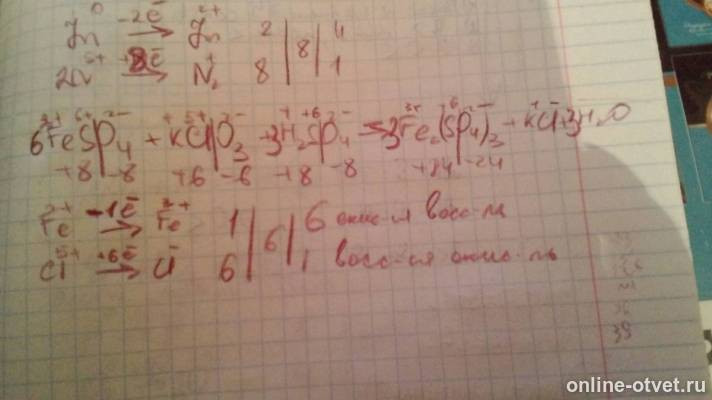 Zn⁰ -2ē → Zn²⁺ 2 | 8 | 4
2N⁵⁺ +8ē → N₂ 8 | | 1
6Fe²⁺S⁶⁺O₄²⁻ + K⁺Cl⁵⁺O₃²⁻ + 3H₂⁺S⁺⁶O₄²⁻ = 3Fe₂³⁺(S⁶O₄²⁻)₃ + K⁺Cl⁻ + 3H₂O
+8 -8 +6 -6 +8 -8 +24 -24
Fe²⁺ -1ē → Fe³⁺ 1 | 6 | 6 окис-я восс-ль
Cl⁵⁺ +6ē → Cl⁻ 6 | | 1 восс-ся окис-ль
39
online-otvet.ru